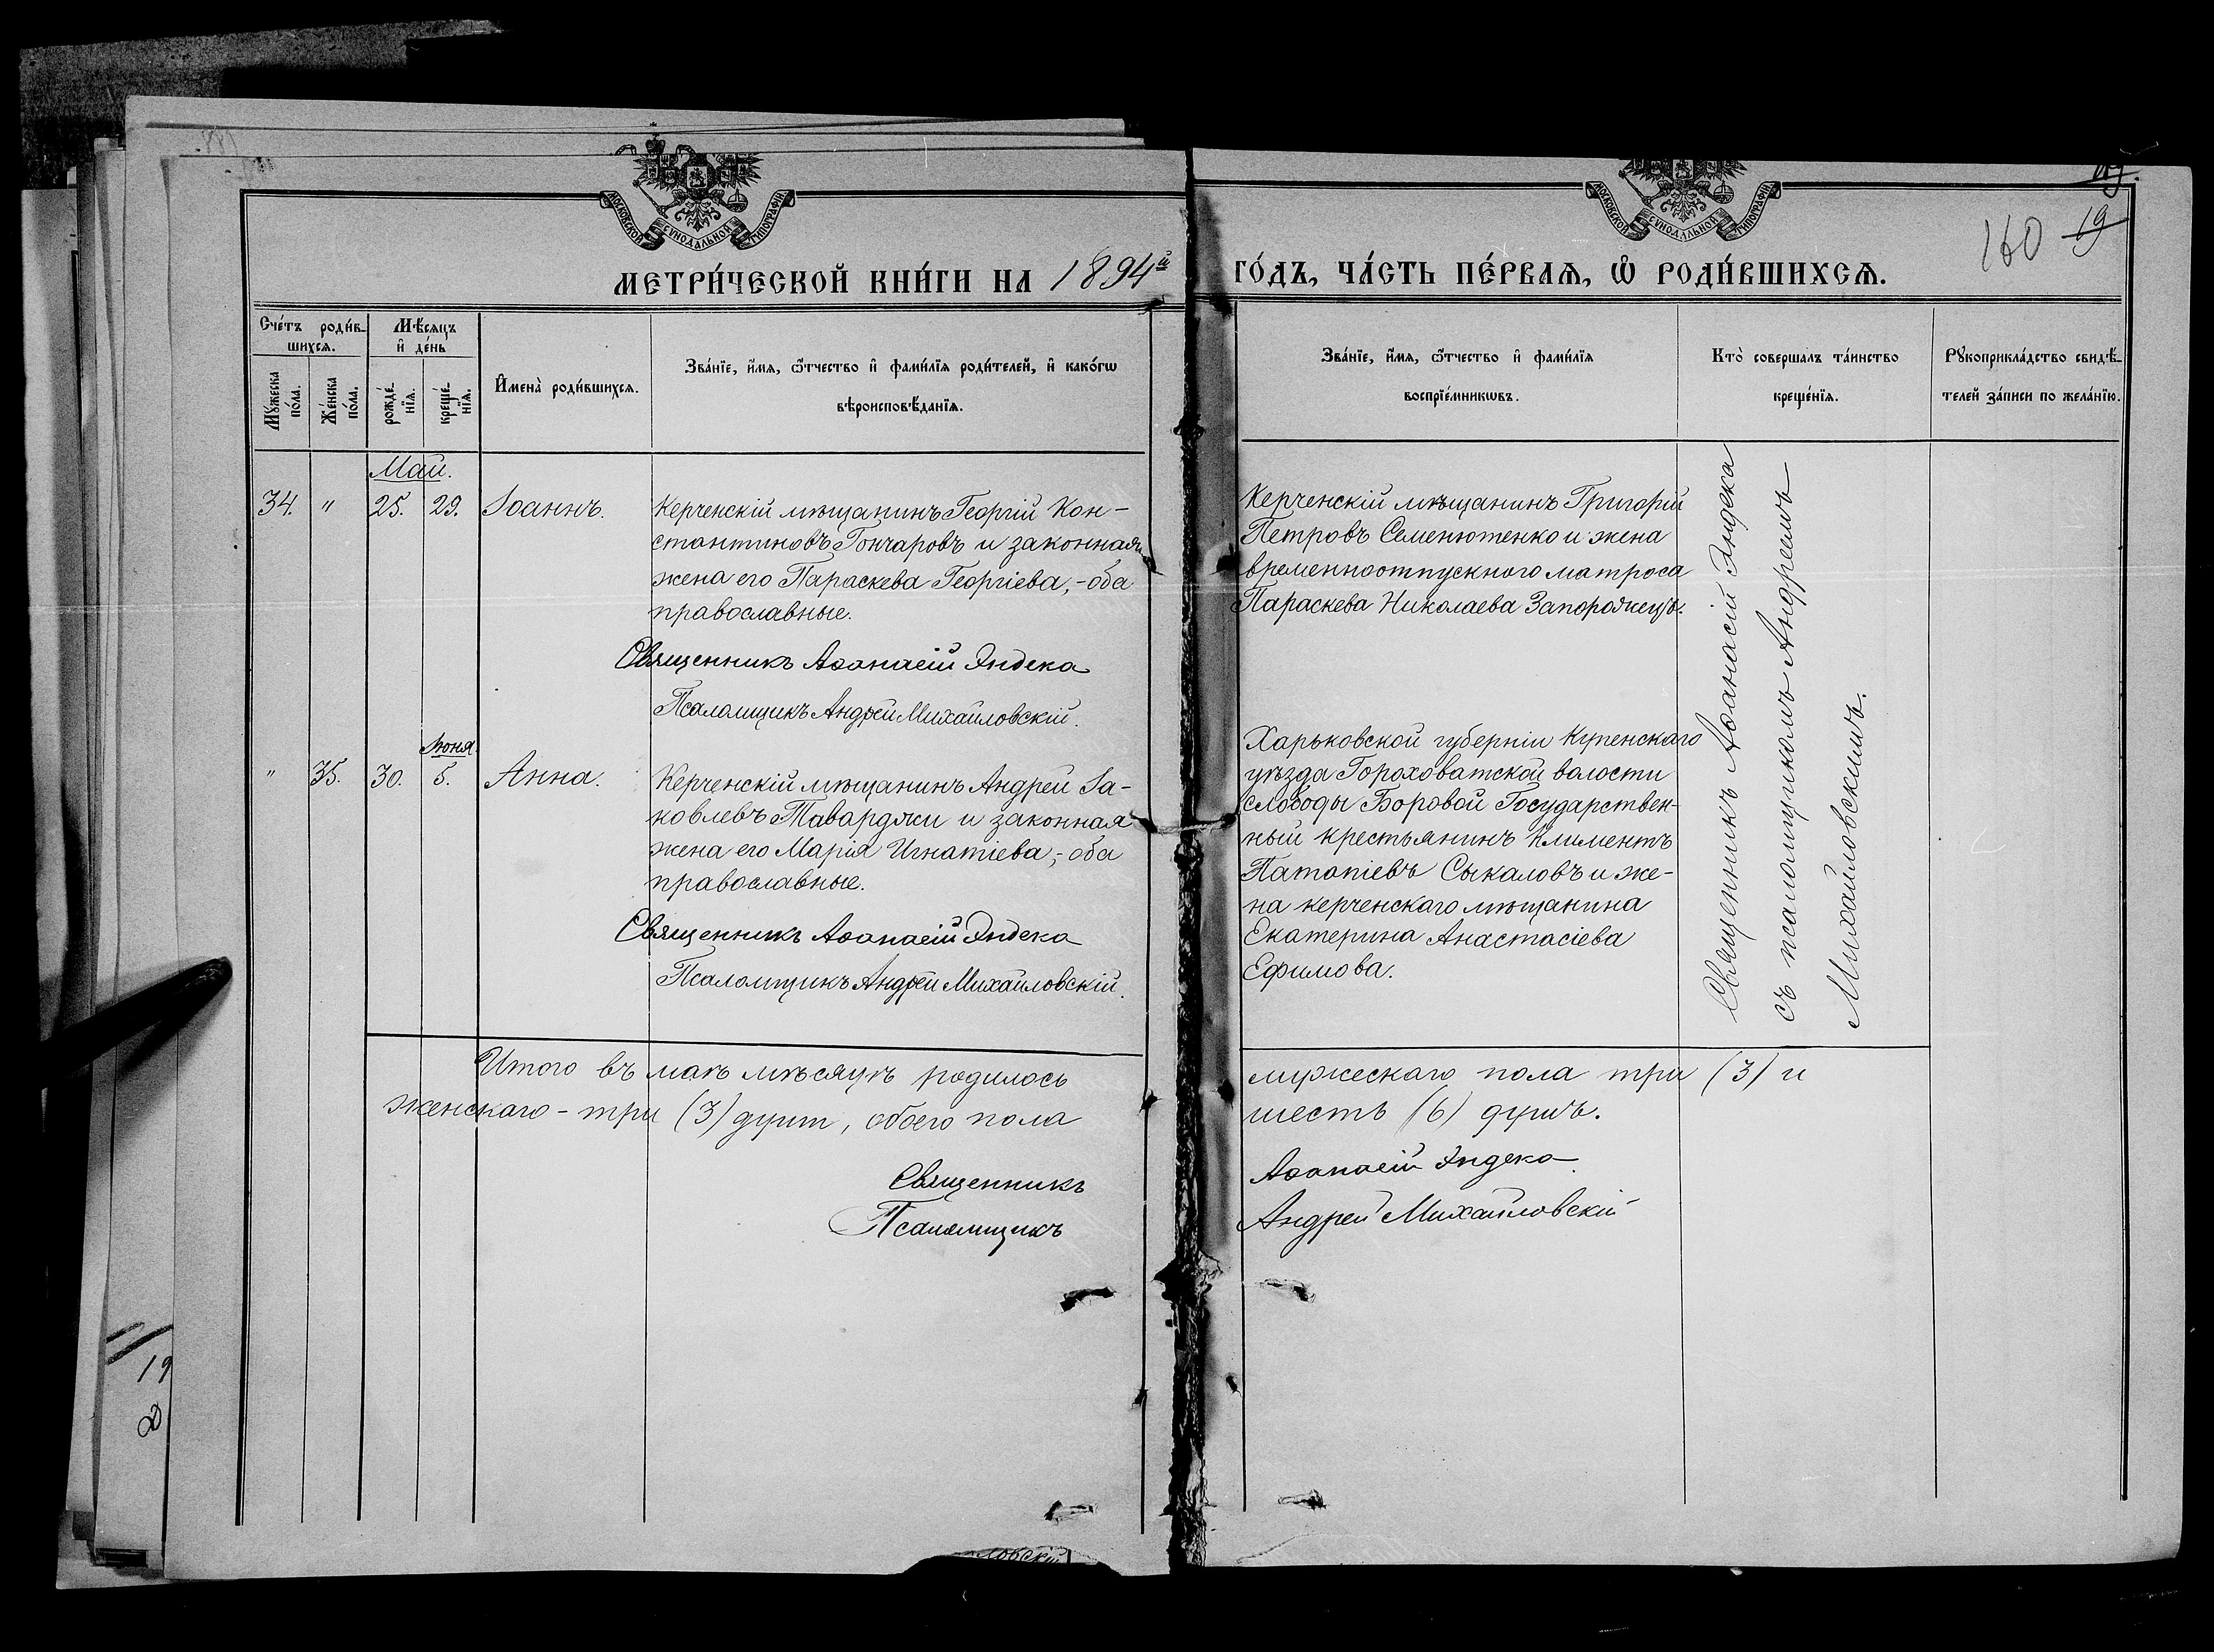 МОСКОВСКОЙ СѴНОДАЛЬНОЙ ТИПОГРАФІИ
МОСКОВСКОЙ СѴНОДАЛЬНОЙ ТИПОГРАФІИ
160 19
МЕТРИ́ЧЕСКОЙ КНИ́ГИ НА 1894й ГО́ДЪ, ЧА́СТЬ ПЕ́РВАѦ, Ѡ҆ РОДИ́ВШИХСѦ.
Сче́тъ роди́в-
шихсѧ.
Мѣ́сяцъ
и҆ де́нь
Мꙋ́жеска
по́ла.
Же́нска
по́ла.
рожде́-
нїѧ.
креще́-
нїѧ.
И҆мена̀ роди́вшихсѧ.
Зва́нїе, и҆́мѧ, ѻ҆́тчество и҆ фами́лїѧ роди́телей, и҆ како́гѡ
вѣроисповѣ́данїѧ.
Зва́нїе, и҆́мѧ, ѻ҆́тчество и҆ фами́лїѧ
воспрїе́мникѡвъ.
Кто̀ совершалъ та́инство
креще́нїѧ.
Рꙋкоприкла́дство свидѣ́-
телей за́писи по жела́нїю.
Май.
34. " 25. 29. Іоаннъ.
Керченскій мѣщанинъ Георгій Кон-
стантиновъ Гончаровъ и законная
жена его Параскева Георгіева,-оба
православные.
Священникъ Аѳанасій Эндека
Псаломщикъ Андрей Михайловскій.
Керченскій мѣщанинъ Григорій
Петровъ Семенютенко и жена
временноотпускного матроса
Параскева Николаева Запорожецъ.
Іюня.
" 35. 30. 5. Анна.
Керченскій мѣщанинъ Андрей Іа-
ковлевъ Таварджи и законная
жена его Марія Игнатіева,-оба
православные.
Священникъ Аѳанасій Эндека
Псаломщикъ Андрей Михайловскій.
Харьковской губерніи Купенскаго
уѣзда Гороховатской волости
слободы Боровой Государствен-
ный крестьянинъ Климентъ
Патапіевъ Сыкаловъ и же-
на керченскаго мѣщанина
Екатерина Анастасіева
Ефимова.
Священникъ Аѳанасій Эндека
съ псаломщикомъ Андреемъ
Михайловскимъ.
Итого въ маѣ мѣсяцѣ родилось мужескаго пола три (3) и
женскаго - три (3) душт, обоего пола шесть (6) душъ.
Священникъ Аѳанасій Эндека
Псаломщикъ Андрей Михайловскій
19
ловскій